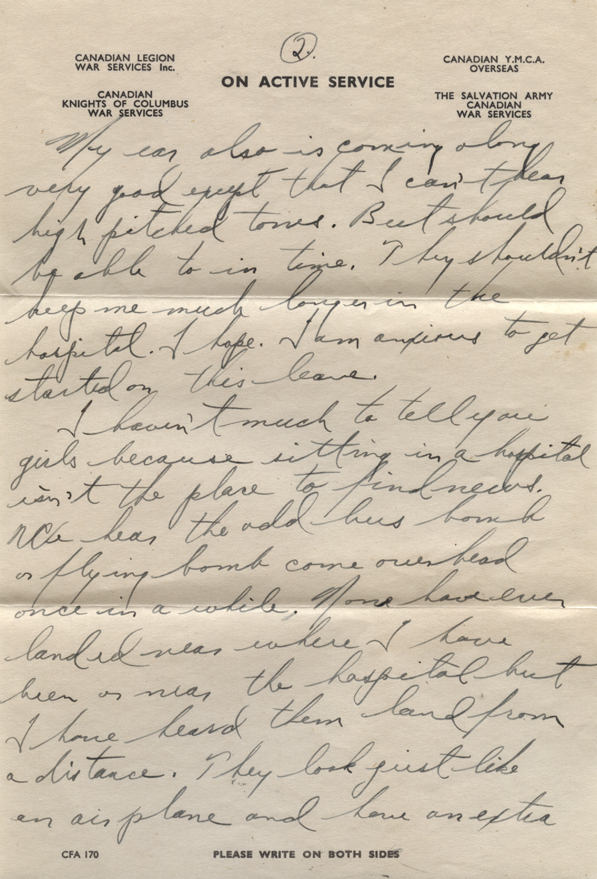 2.
CANADIAN LEGION
WAR SERVICES Inc.
CANADIAN
KNIGHTS OF COLUMBUS
WAR SERVICES
ON ACTIVE SERVICE
CANADIAN Y.M.C.A.
OVERSEAS
THE SALVATION ARMY
CANADIAN
WAR SERVICES
My ear also is coming along
very good except that I can't hear
high pitched tones. But should
be able to in time. They shouldn't
keep me much longer in the
hospital. I hope. I am anxious to get
started on this leave.
I haven't much to tell you
girls because sitting in a hospital
isn't the place to find news.
We hear the odd bus bomb
or flying bomb come overhead
once in a while. None have ever
landed near where I have
been or near the hospital but
I have heard them land from
a distance. They look just like
an airplane and have an extra
CFA 170
PLEASE WRITE ON BOTH SIDES